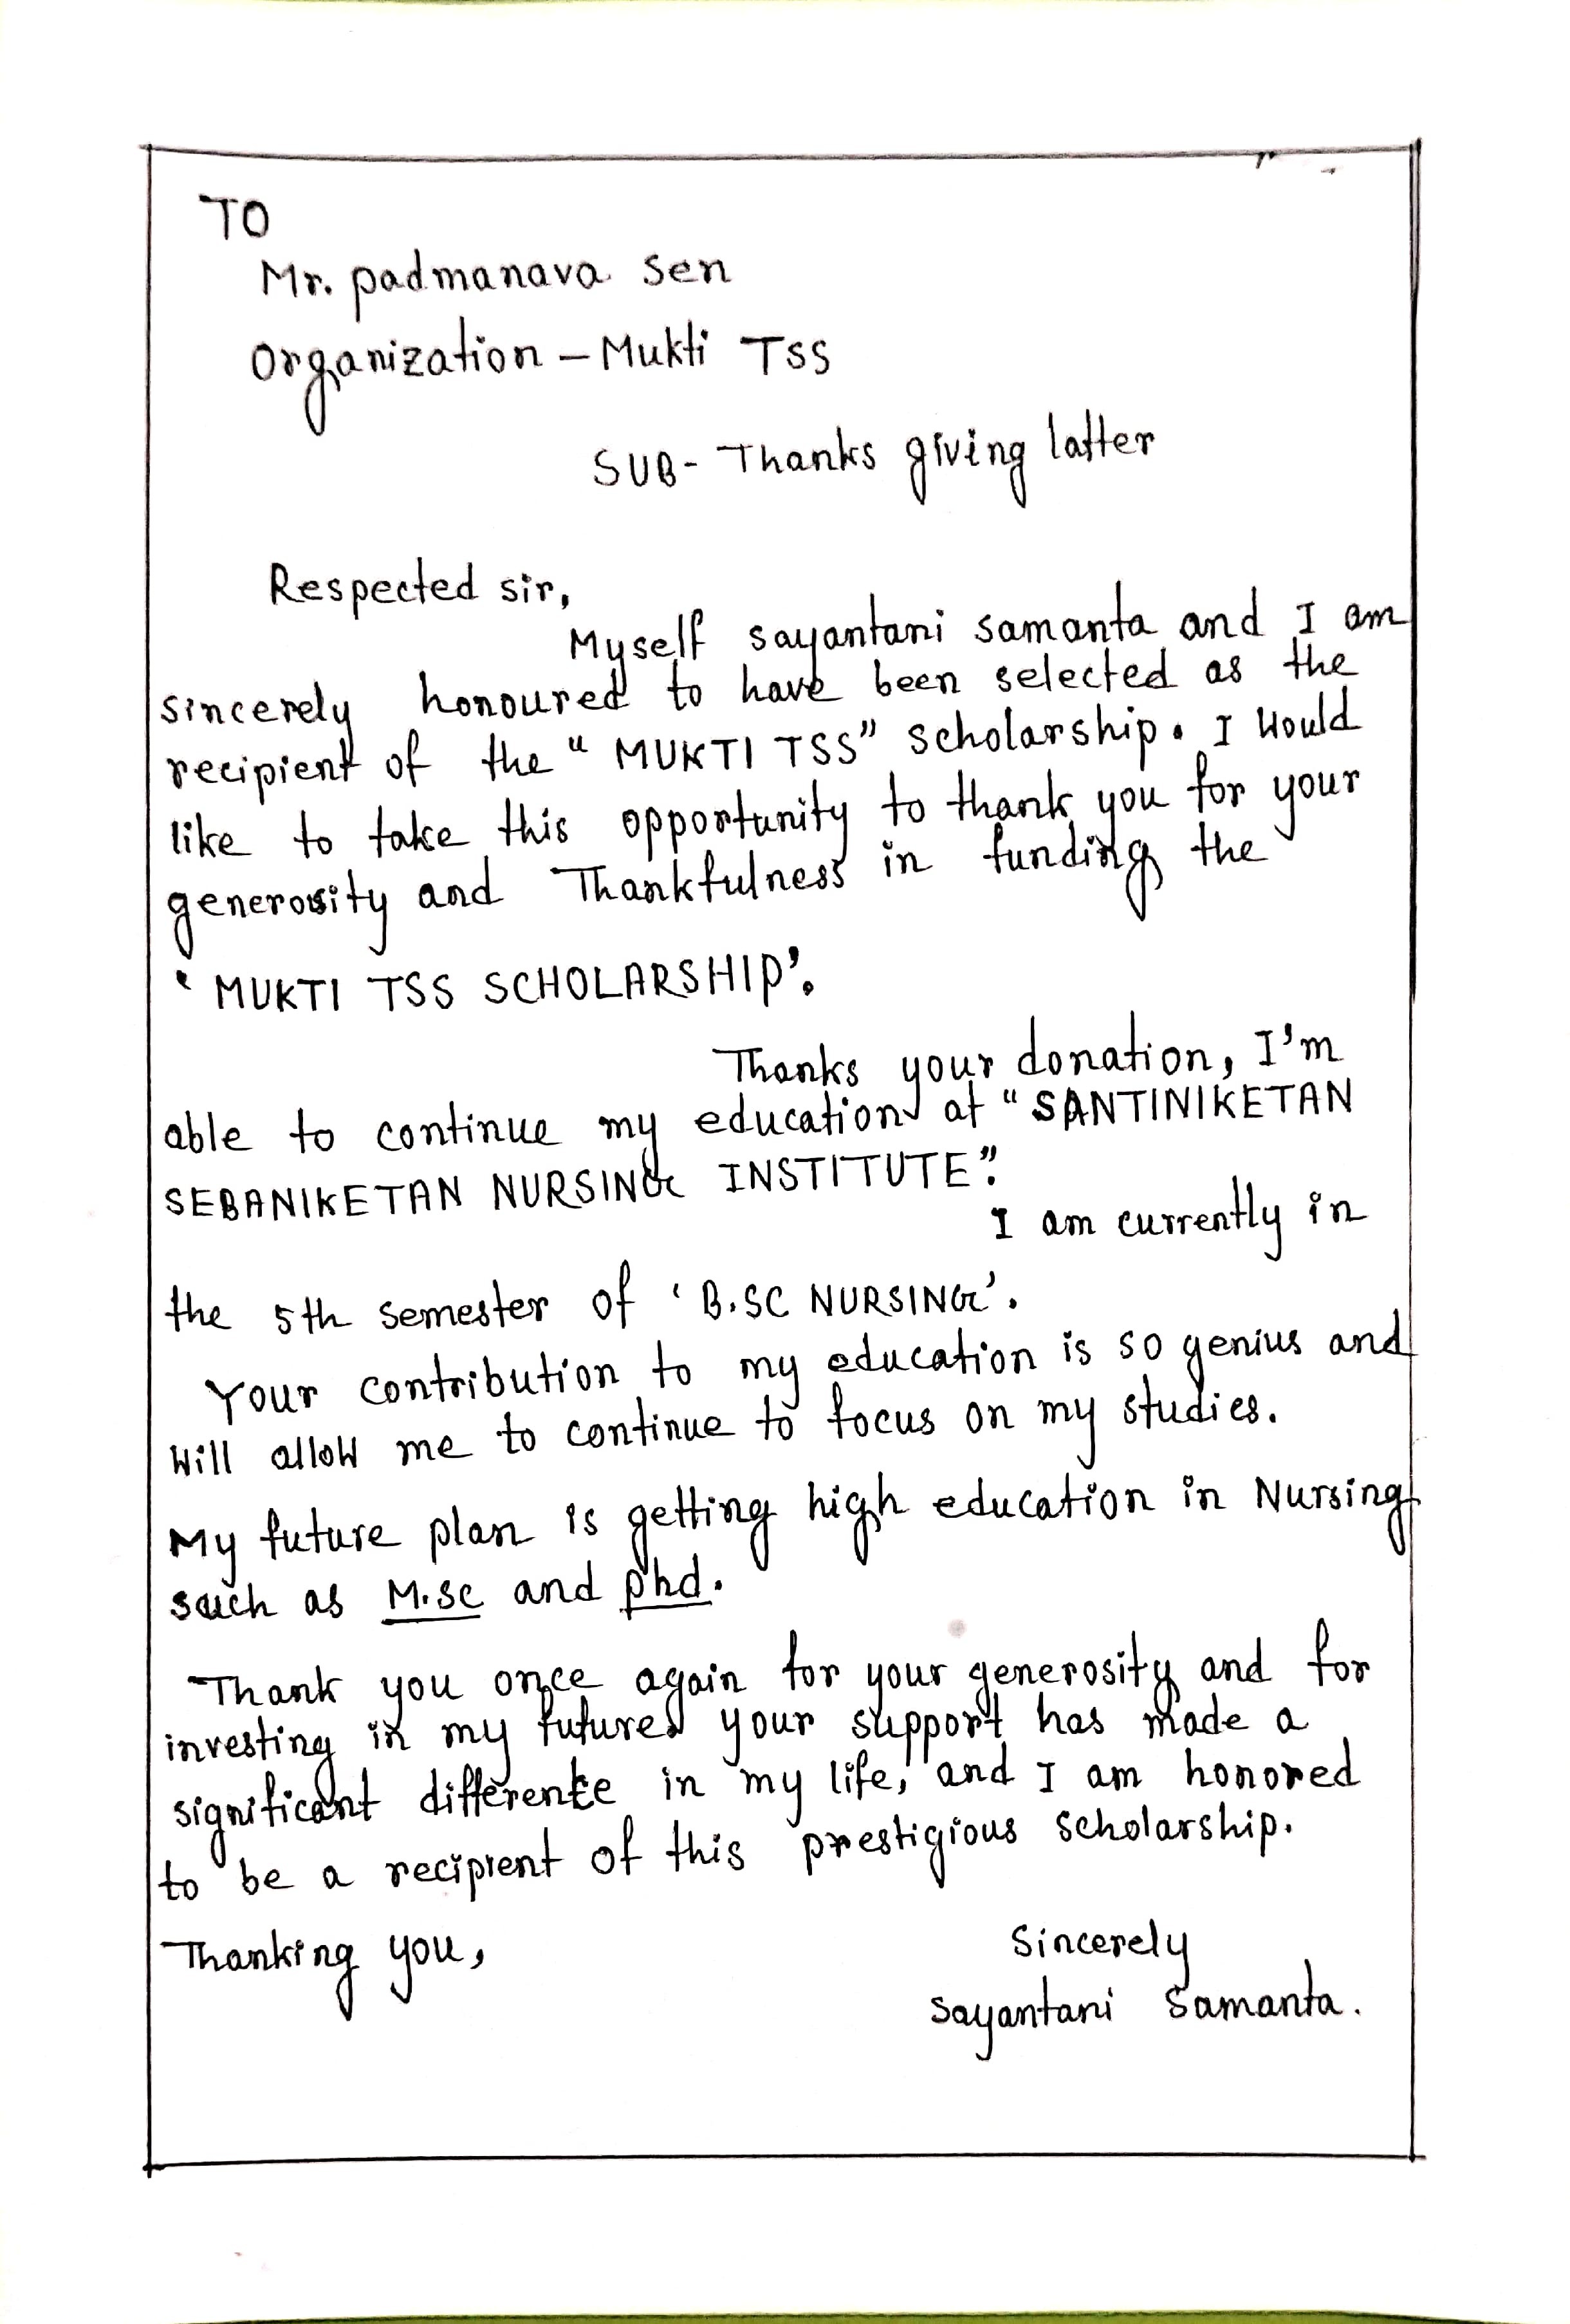 TO
Mr. padmanava sen
Organization – Mukti TSS
SUB - Thanks giving latter
Respected sir,
Myself sayantani samanta and I am
sincerely honoured to have been selected as the
recipient of the "MUKTI TSS" scholarship. I would
like to take this opportunity to thank you for your
generosity and Thankfulness in funding the
'MUKTI TSS SCHOLARSHIP'.
Thanks your donation, I'm
able to continue my education at "SANTINIKETAN
SEBANIKETAN NURSING INSTITUTE".
I am currently in
the 5th semester of 'B.SC NURSING'.
Your contribution to my education is so genius and
will allow me to continue to focus on my studies.
My future plan is getting high education in Nursing
such as M.sc and phd.
Thank you once again for your generosity and for
investing in my future. your support has made a
significant difference in my life, and I am honored
to be a recipient of this prestigious scholarship.
Thanking you,
Sincerely
Sayantani Samanta.